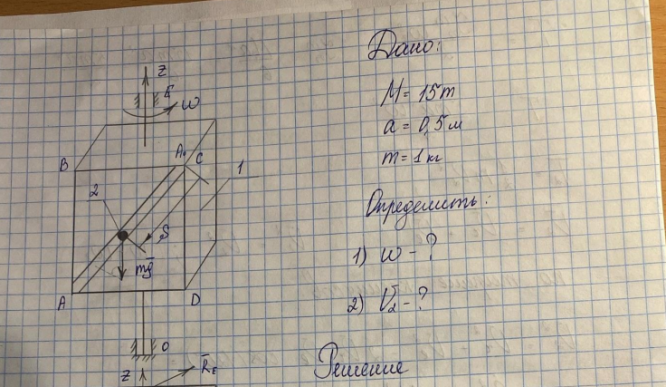 Z
E
ω
B
A₁
C
1
2
S
mg̅
A
D
O
Z
R̅ᴇ
Дано:
M = 15m
a = 0,5 м
m = 1 кг
Определить:
1) ω - ?
2) V̅₂ - ?
Решение